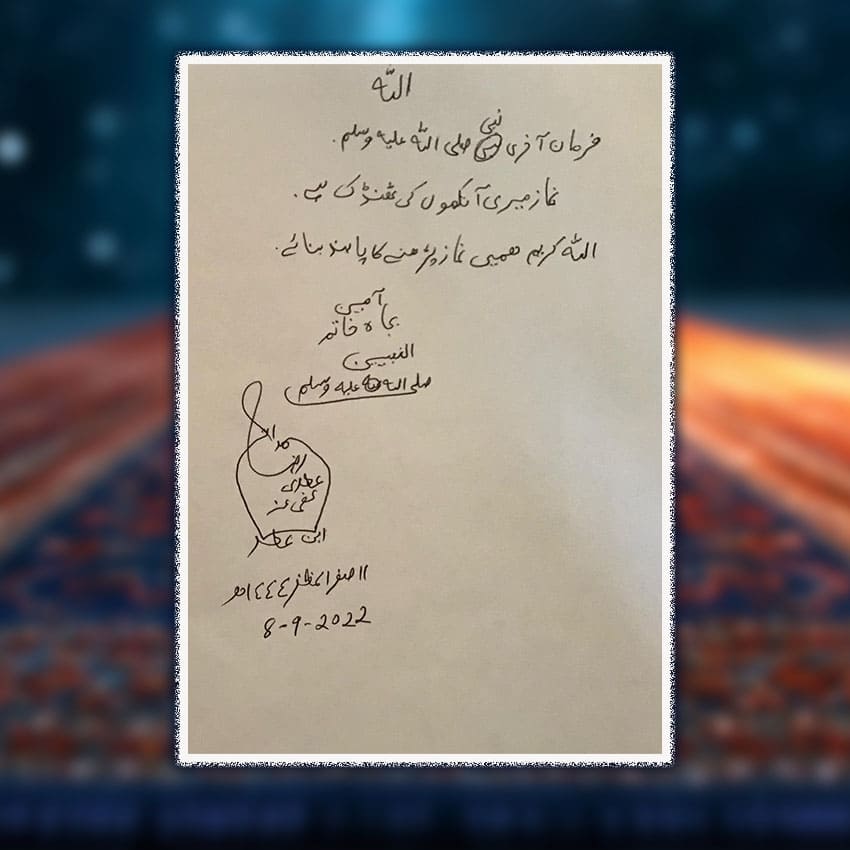 اللہ
فرمان آخری نبی صلی اللہ علیہ وسلم.
نماز میری آنکھوں کی ٹھنڈک ہے.
اللہ کریم ھمیں نماز پڑھنے کا پابند بنائے.
آمین
بجاہ خاتم
النبیین
صلی اللہ علیہ وسلم
رضا
عطاری
عفی عنہ
ابن عطار
۱۱ صفر المظفر ۱۴۴۴ھ
8-9-2022